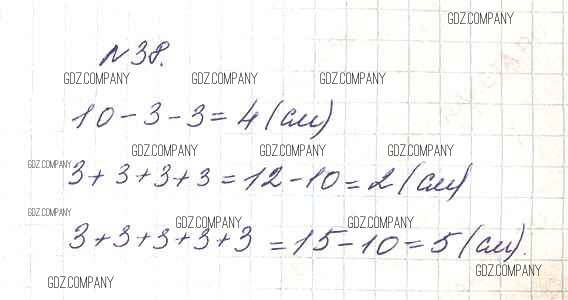 GDZ.COMPANY
№38.
GDZ.COMPANY GDZ.COMPANY GDZ.COMPANY
10-3-3=4(см)
GDZ.COMPANY GDZ.COMPANY GDZ.COMPANY
GDZ.COMPANY
3+3+3+3=12-10=2(см)
GDZ.COMPANY
GDZ.COMPANY GDZ.COMPANY
3+3+3+3+3=15-10=5(см).
GDZ.COMPANY
GDZ.COMPANY